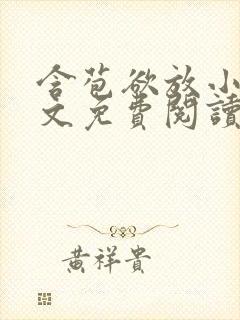 含苞欲放小
文免費閱讀
黃祥貴